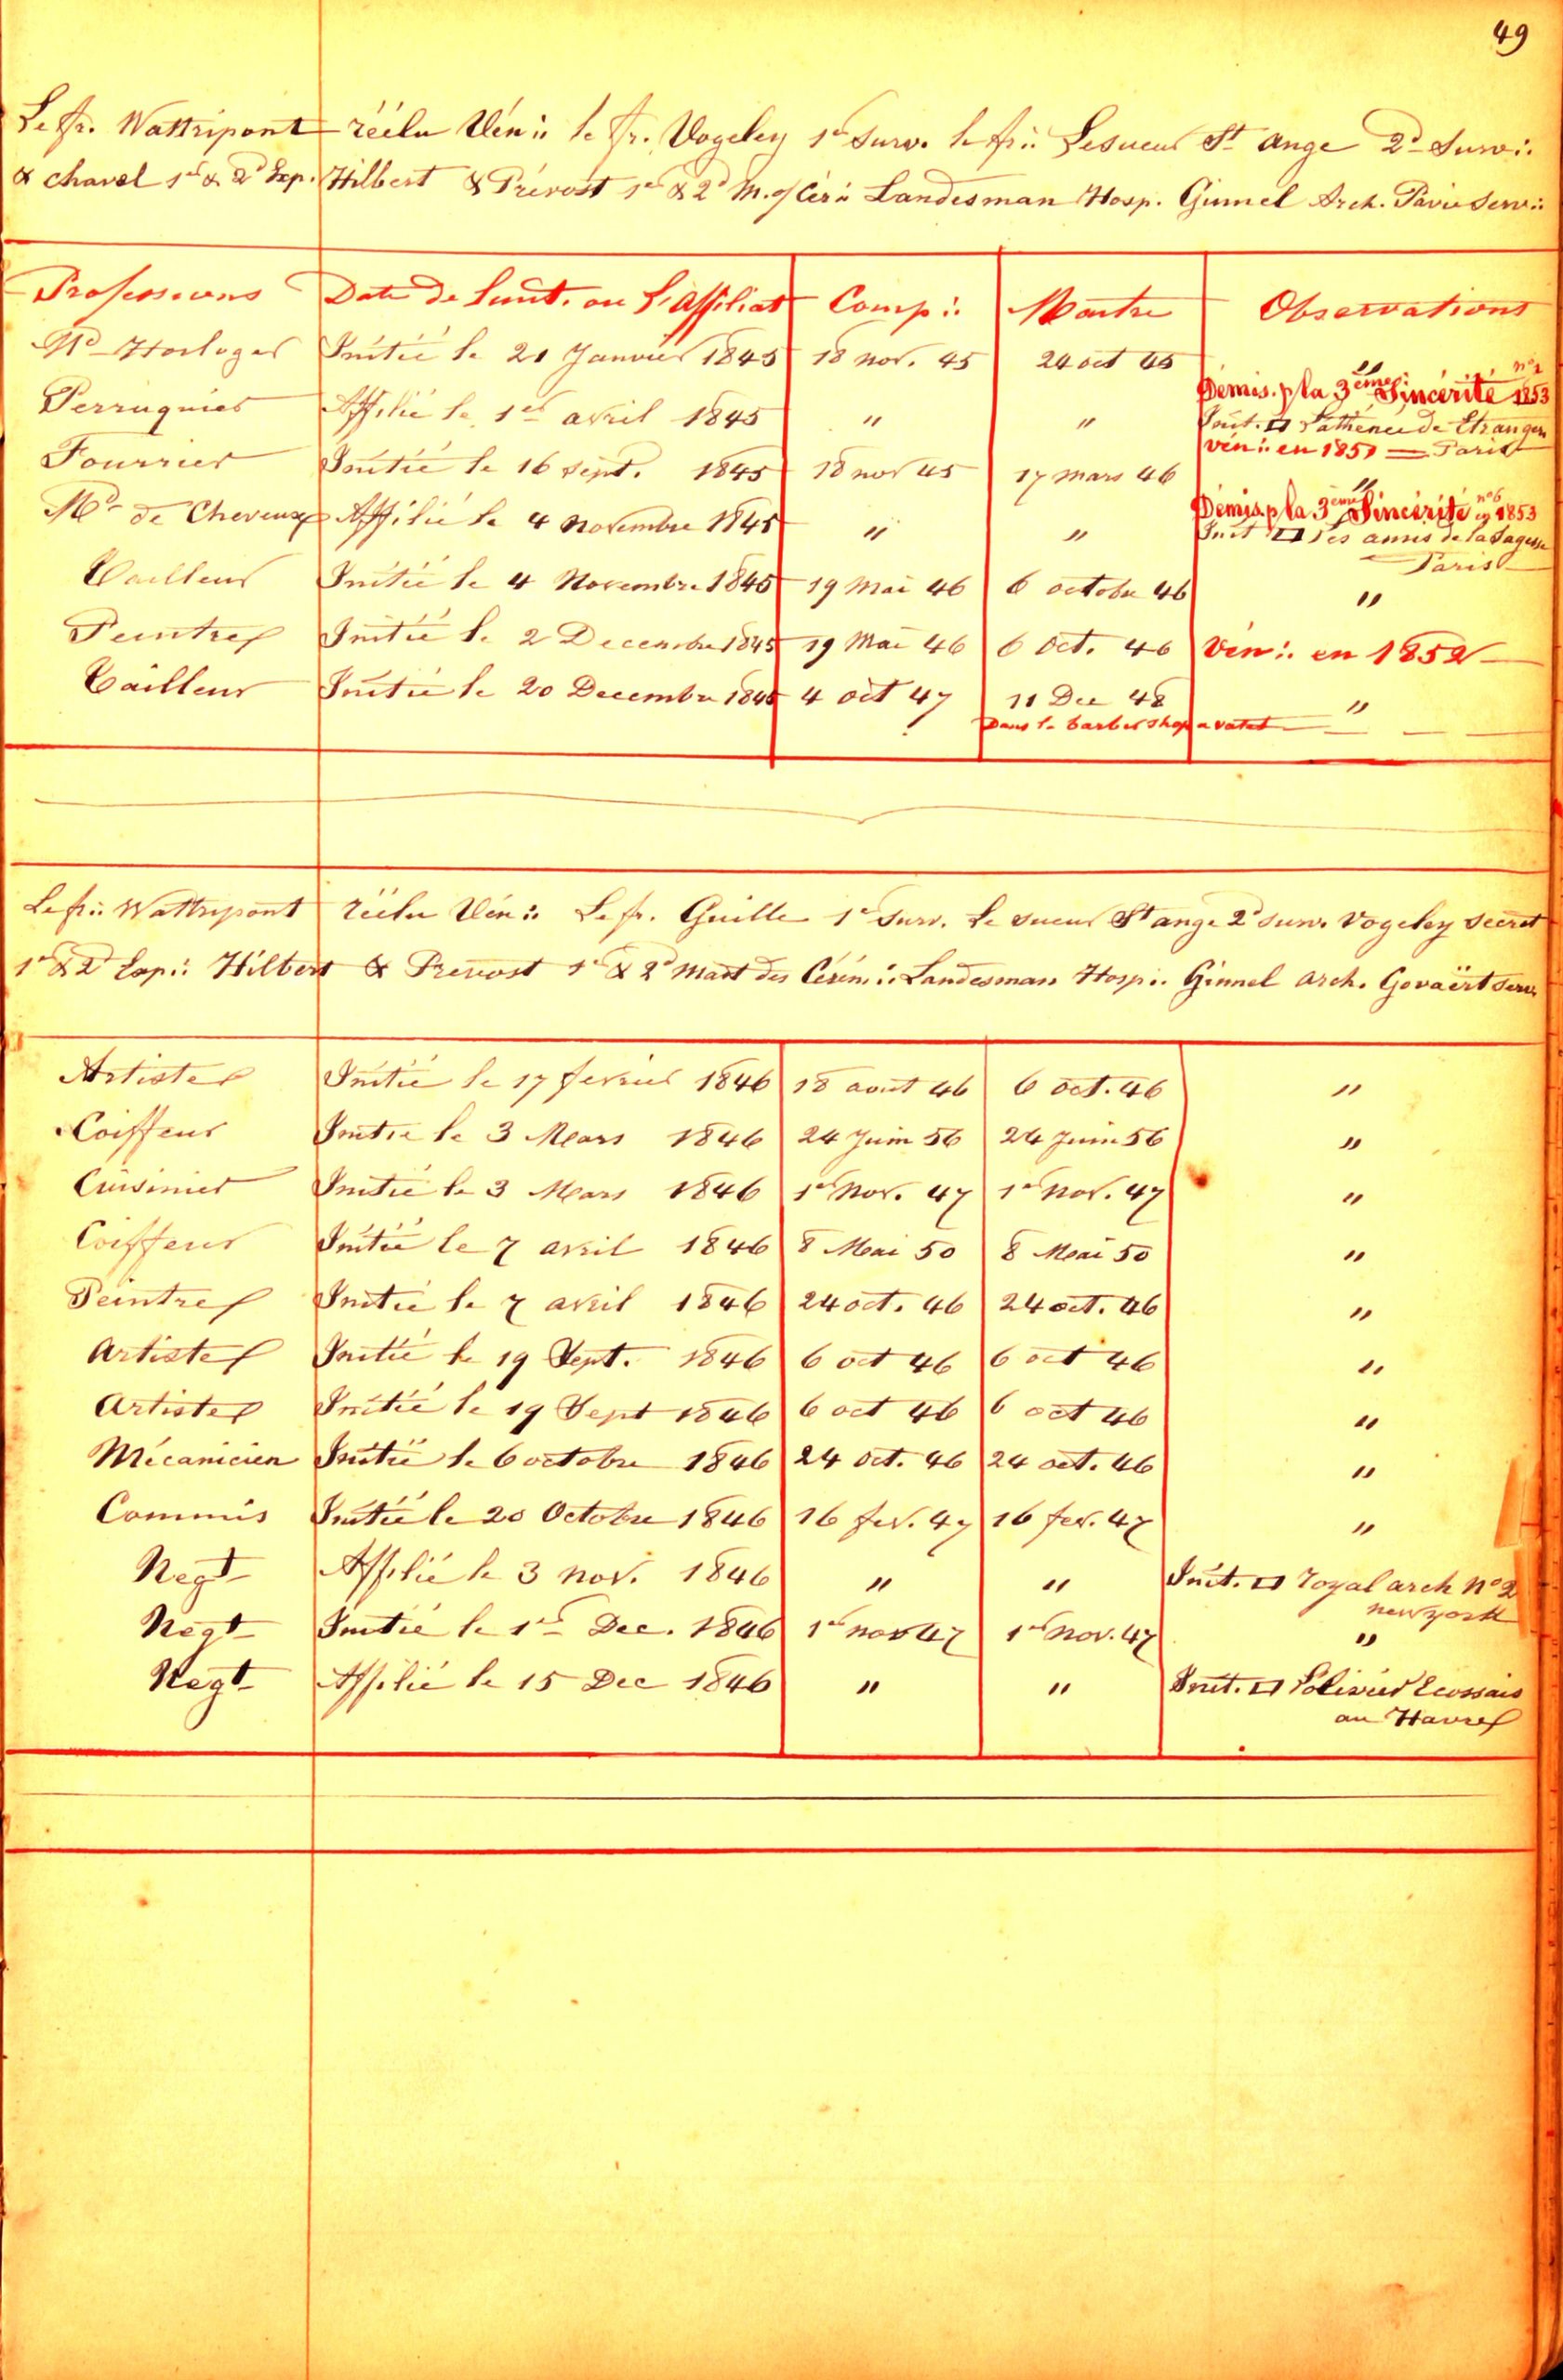 49
Le fr. Wattripont réélu Vén∴ le fr. Vogeley 1er Surv. le fr∴ Lesueur St ange 2d Surv∴
& chavel 1er & 2d Exp. Hilbert & Prévost 1er & 2d M. d Cér∴ Landesman Hosp. Ginnel Arch. Pavie Serv∴
Professions Date de l'init. ou l'affiliat Comp∴ Maitre Observations
Md Horloger Initié le 21 Janvier 1845 18 nov. 45 24 oct 45 "
Démis. p/ la 3eme Sincérité no 1 1853
Perruquier Affilié le 1er avril 1845 " " Init. □ l'athénée de Etrangers
Vén∴ en 1851 — Paris
Fourrier Initié le 16 Sept. 1845 18 nov 45 17 mars 46 "
Démis p la 3eme Sincérité no 6 en 1853
Md de Cheveux Affilié le 4 Novembre 1845 " " Init □ des amis de la Sagesse
Paris
Tailleur Initié le 4 Novembre 1845 19 Mai 46 6 octobre 46 "
Peintre Initié le 2 Decembre 1845 19 Mai 46 6 Oct. 46 Vén∴ en 1852
Tailleur Initié le 20 Decembre 1845 4 oct 47 11 Dec 48 "
Dans le barber shop a
Le fr∴ Wattripont réélu Vén∴ Le fr. Guille 1er Surv. Le sueur St ange 2d surv. Vogeley secret
1er & 2d Exp∴ Hilbert & Prevost 1er & 2d Mait des Cérém∴ Landesman Hosp∴ Ginnel arch. Govaërt Serv.
Artiste Initié le 17 fevrier 1846 18 aout 46 6 oct. 46 "
Coiffeur Initié le 3 Mars 1846 24 Juin 56 24 Juin 56 "
Cuisinier Initié le 3 Mars 1846 1er Nov. 47 1er nov. 47 "
Coiffeur Initié le 7 avril 1846 8 Mai 50 8 Mai 50 "
Peintre Initié le 7 avril 1846 24 oct. 46 24 oct. 46 "
Artiste Initié le 19 Sept. 1846 6 oct 46 6 oct 46 "
Artiste Initié le 19 Sept 1846 6 oct 46 6 oct 46 "
Mécanicien Initié le 6 octobre 1846 24 oct. 46 24 oct. 46 "
Commis Initié le 20 Octobre 1846 16 fev. 47 16 fev. 47 "
Negt Affilié le 3 nov. 1846 " " Init. □ Royal arch No 2
new york
Negt Initié le 1er Dec. 1846 1er nov 47 1er nov. 47 "
Negt Affilié le 15 Dec 1846 " " Init. □ l'olivier Ecossais
au Havre